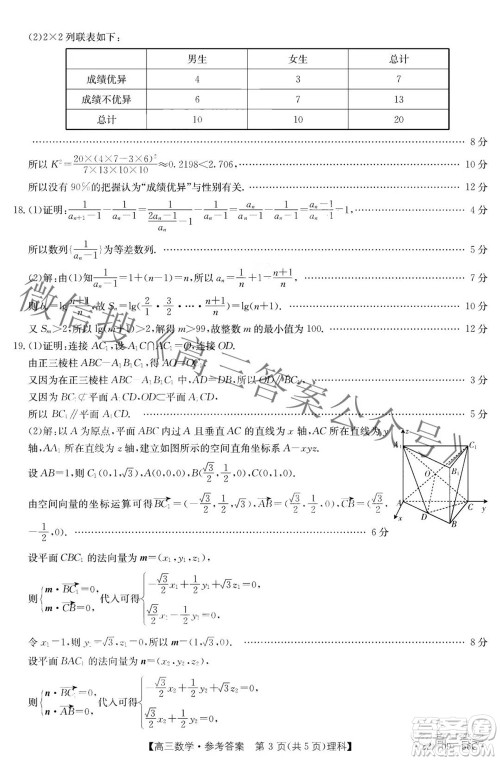 (2)2×2列联表如下：
男生 女生 总计
成绩优异 4 3 7
成绩不优异 6 7 13
总计 10 10 20
8分
所以K²=20×(4×7-3×6)²/(7×13×10×10)≈0.2198<2.706, 10分
所以没有90%的把握认为“成绩优异”与性别有关. 12分
18.(1)证明：1/(aₙ₊₁-1)-1/(aₙ-1)=1/((2aₙ-1)/aₙ-1)-1/(aₙ-1)=aₙ/(aₙ-1)-1/(aₙ-1)=1, 4分
所以数列{1/(aₙ-1)}为等差数列. 5分
(2)解：由(1)知1/(aₙ-1)=1+(n-1)=n, 所以aₙ=1/n+1=(n+1)/n, 7分
则bₙ=lg (n+1)/n, 故Sₙ=lg(2/1·3/2·…·(n+1)/n)=lg(n+1). 10分
又Sₘ>2, 所以lg(m+1)>2, 解得m>99, 故整数m的最小值为100. 12分
19.(1)证明：连接AC₁, 设A₁C∩AC₁=O, 连接OD,
由正三棱柱ABC-A₁B₁C₁, 得AO=OC₁,
又因为在正三棱柱ABC-A₁B₁C₁中, AD=DB, 所以OD∥BC₁, 3分
又因为BC₁⊄平面A₁CD, OD⊂平面A₁CD,
所以BC₁∥平面A₁CD. 5分
(2)解：以A为原点, 平面ABC内过A且垂直AC的直线为x轴, AC所在直线为y
轴, AA₁所在直线为z轴, 建立如图所示的空间直角坐标系A-xyz.
设AB=1, 则C₁(0,1,√3), A(0,0,0), B(√3/2,1/2,0), C(0,1,0),
由空间向量的坐标运算可得BC₁=(-√3/2,1/2,√3), CB=(√3/2,
-1/2,0). 6分
设平面CBC₁的法向量为m=(x₁,y₁,z₁),
则{m·BC₁=0, m·CB=0, 代入可得{-√3/2x₁+1/2y₁+√3z₁=0,
令x₁=1, 则y₁=√3,z₁=0, 所以m=(1,√3,0). 8分
设平面BAC₁的法向量为n=(x₂,y₂,z₂),
则{n·BC₁=0, n·AB=0. 代入可得
【高三数学·参考答案 第3页(共5页)理科】
微信搜《高三答案公众号》